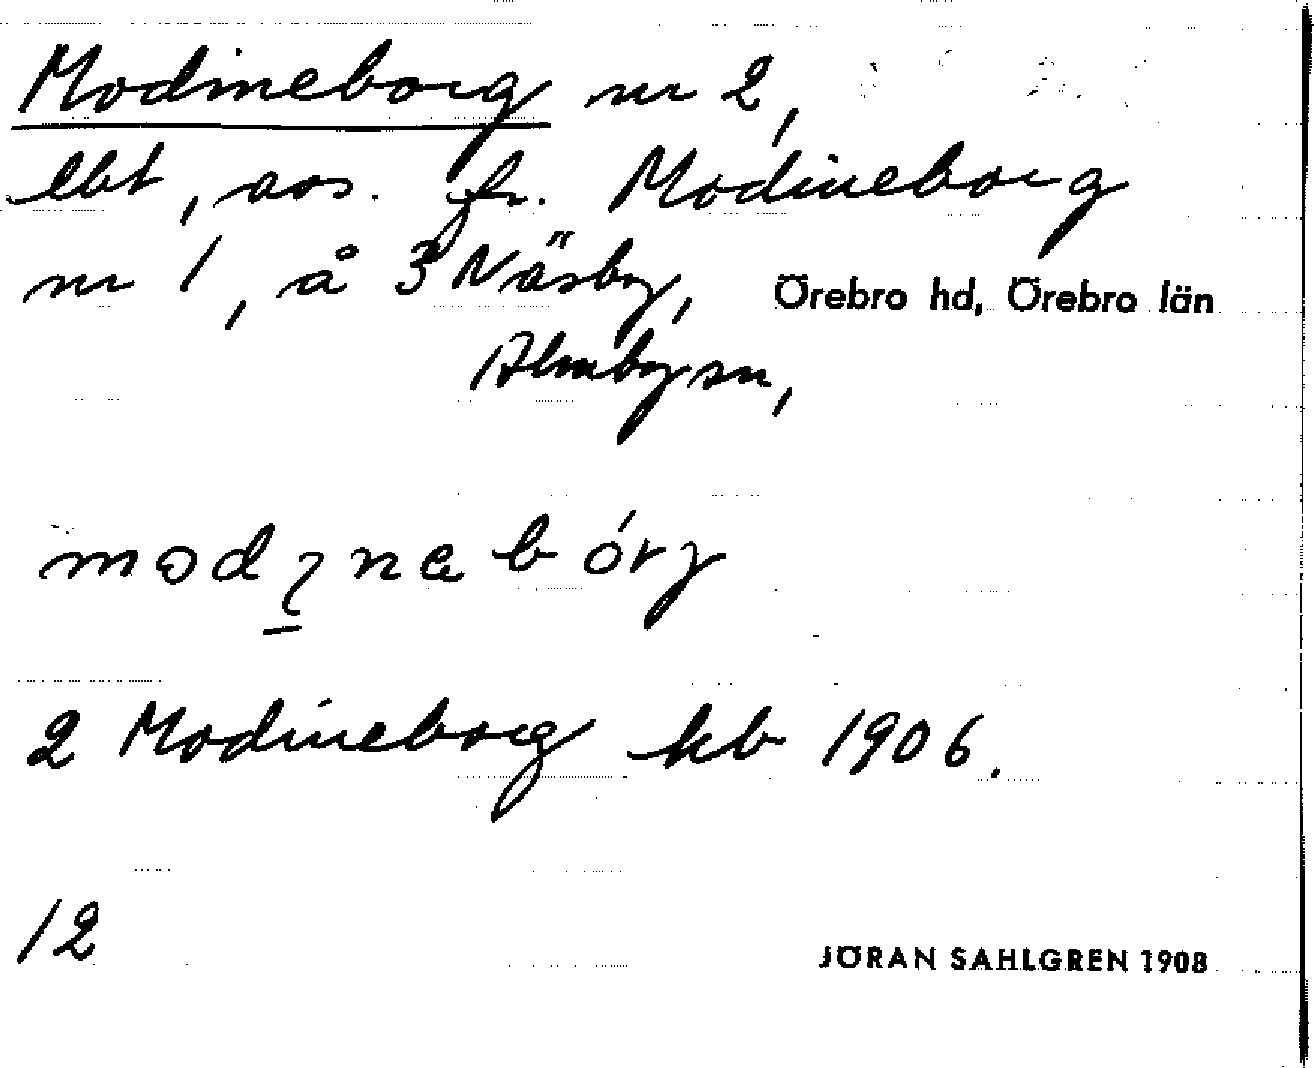 Modineborg nr 2,
lbt, avs. fr. Modineborg
nr 1, å 3 Näsby, Örebro hd, Örebro län
Almby sn,
2 Modineborg kb 1906.
12
JÖRAN SAHLGREN 1908